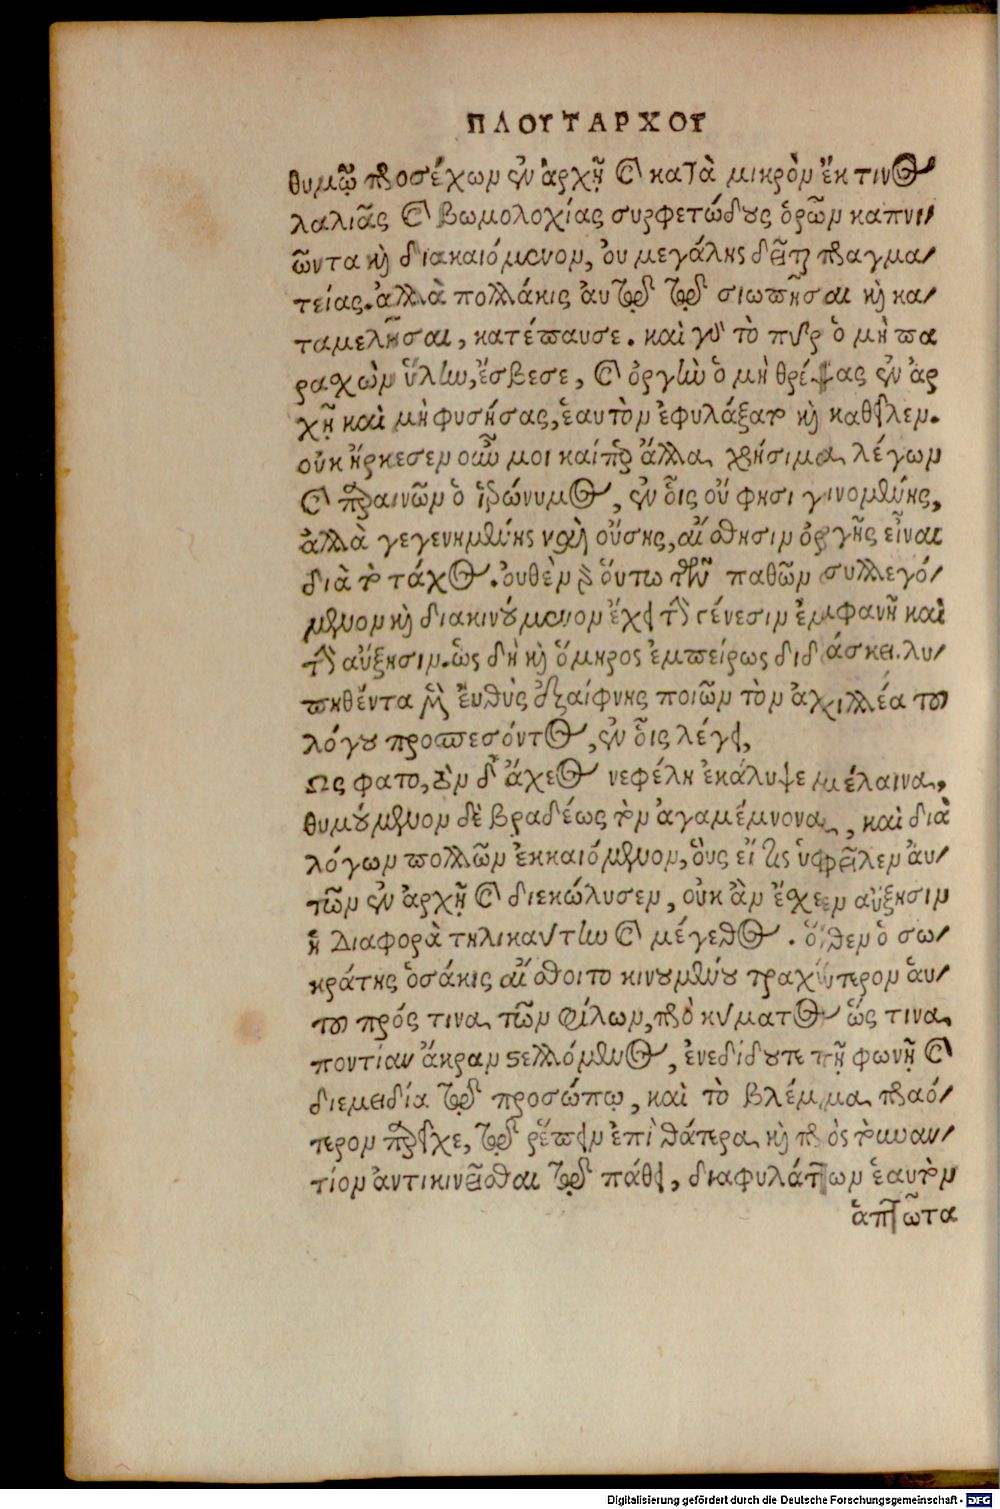 ΠΛΟΥΤΑΡΧΟΥ
θυμῷ προσέχων ἐν ἀρχῇ καὶ κατὰ μικρὸν ἔκ τινος
λαλιᾶς καὶ βωμολοχίας συρφετώδους ὁρῶν καπνι/
ῶντα καὶ διακαιόμενον, ὀυ μεγάλης δεῖται πραγμα/
τείας. ἀλλὰ πολλάκις ἀυτῷ τῷ σιωπῆσαι καὶ κα/
ταμελῆσαι, κατέπαυσε. καὶ γὰρ τὸ πῦρ ὁ μὴ πα
ραχὼν ὕλην, ἔσβεσε, καὶ ὀργὴν ὁ μὴ θρέψας ἐν ἀρ
χῇ καὶ μὴ φυσήσας, ἑαυτὸν ἐφυλάξατο καὶ καθεῖλεν.
οὐκ ἤρκεσεν οὖν μοι καίπερ ἄλλα χρήσιμα λέγων
καὶ παραινῶν ὁ ἱερώνυμος, ἐν οἷς οὔ φησι γινομένης,
ἀλλὰ γεγενημένης καὶ οὔσης, αἴσθησιν ὀργῆς εἶναι
διὰ τὸ τάχος. ὀυθὲν γὰρ ὅυτω τῶν παθῶν συλλεγό/
μενον καὶ διακινούμενον ἔχει τὴν γένεσιν ἐμφανῆ καὶ
τὴν αὔξησιν. ὡς δὴ καὶ ὅμηρος ἐμπείρως διδάσκει. λυ/
πηθέντα μὲν ἐυθὺς ἐξαίφνης ποιῶν τὸν ἀχιλλέα τοῦ
λόγου προπεσόντος, ἐν οἷς λέγει,
Ως φατο, τὸν δ' ἄχεος νεφέλη ἐκάλυψε μέλαινα,
θυμούμενον δὲ βραδέως τὸν ἀγαμέμνονα, καὶ διὰ
λόγων πολλῶν ἐκκαιόμενον, ὅυς εἴ τις ὑφεῖλεν ἀυ/
τῶν ἐν ἀρχῇ καὶ διεκώλυσεν, οὐκ ἂν ἔσχεν αὔξησιν
ἡ Διαφορὰ τηλικαύτην καὶ μέγεθος. ὅθεν ὁ σω/
κράτης ὁσάκις αἴσθοιτο κινουμένου τραχύτερον ἑαυ/
τοῦ πρός τινα τῶν φίλων, πρὸ κύματος ὥς τινα
ποντίαν ἄκραν στελλόμενος, ἐνεδίδουτε τῇ φωνῇ καὶ
διεμειδία τῷ προσώπῳ, καὶ τὸ βλέμμα πραό/
τερον παρεῖχε, τῷ ῥέπειν ἐπὶ θάτερα καὶ πρὸς τοὐναν/
τίον ἀντικινεῖσθαι τῷ πάθει, διαφυλάττων ἑαυτὸν
ἀπτῶτα
Digitalisierung gefördert durch die Deutsche Forschungsgemeinschaft - DFG